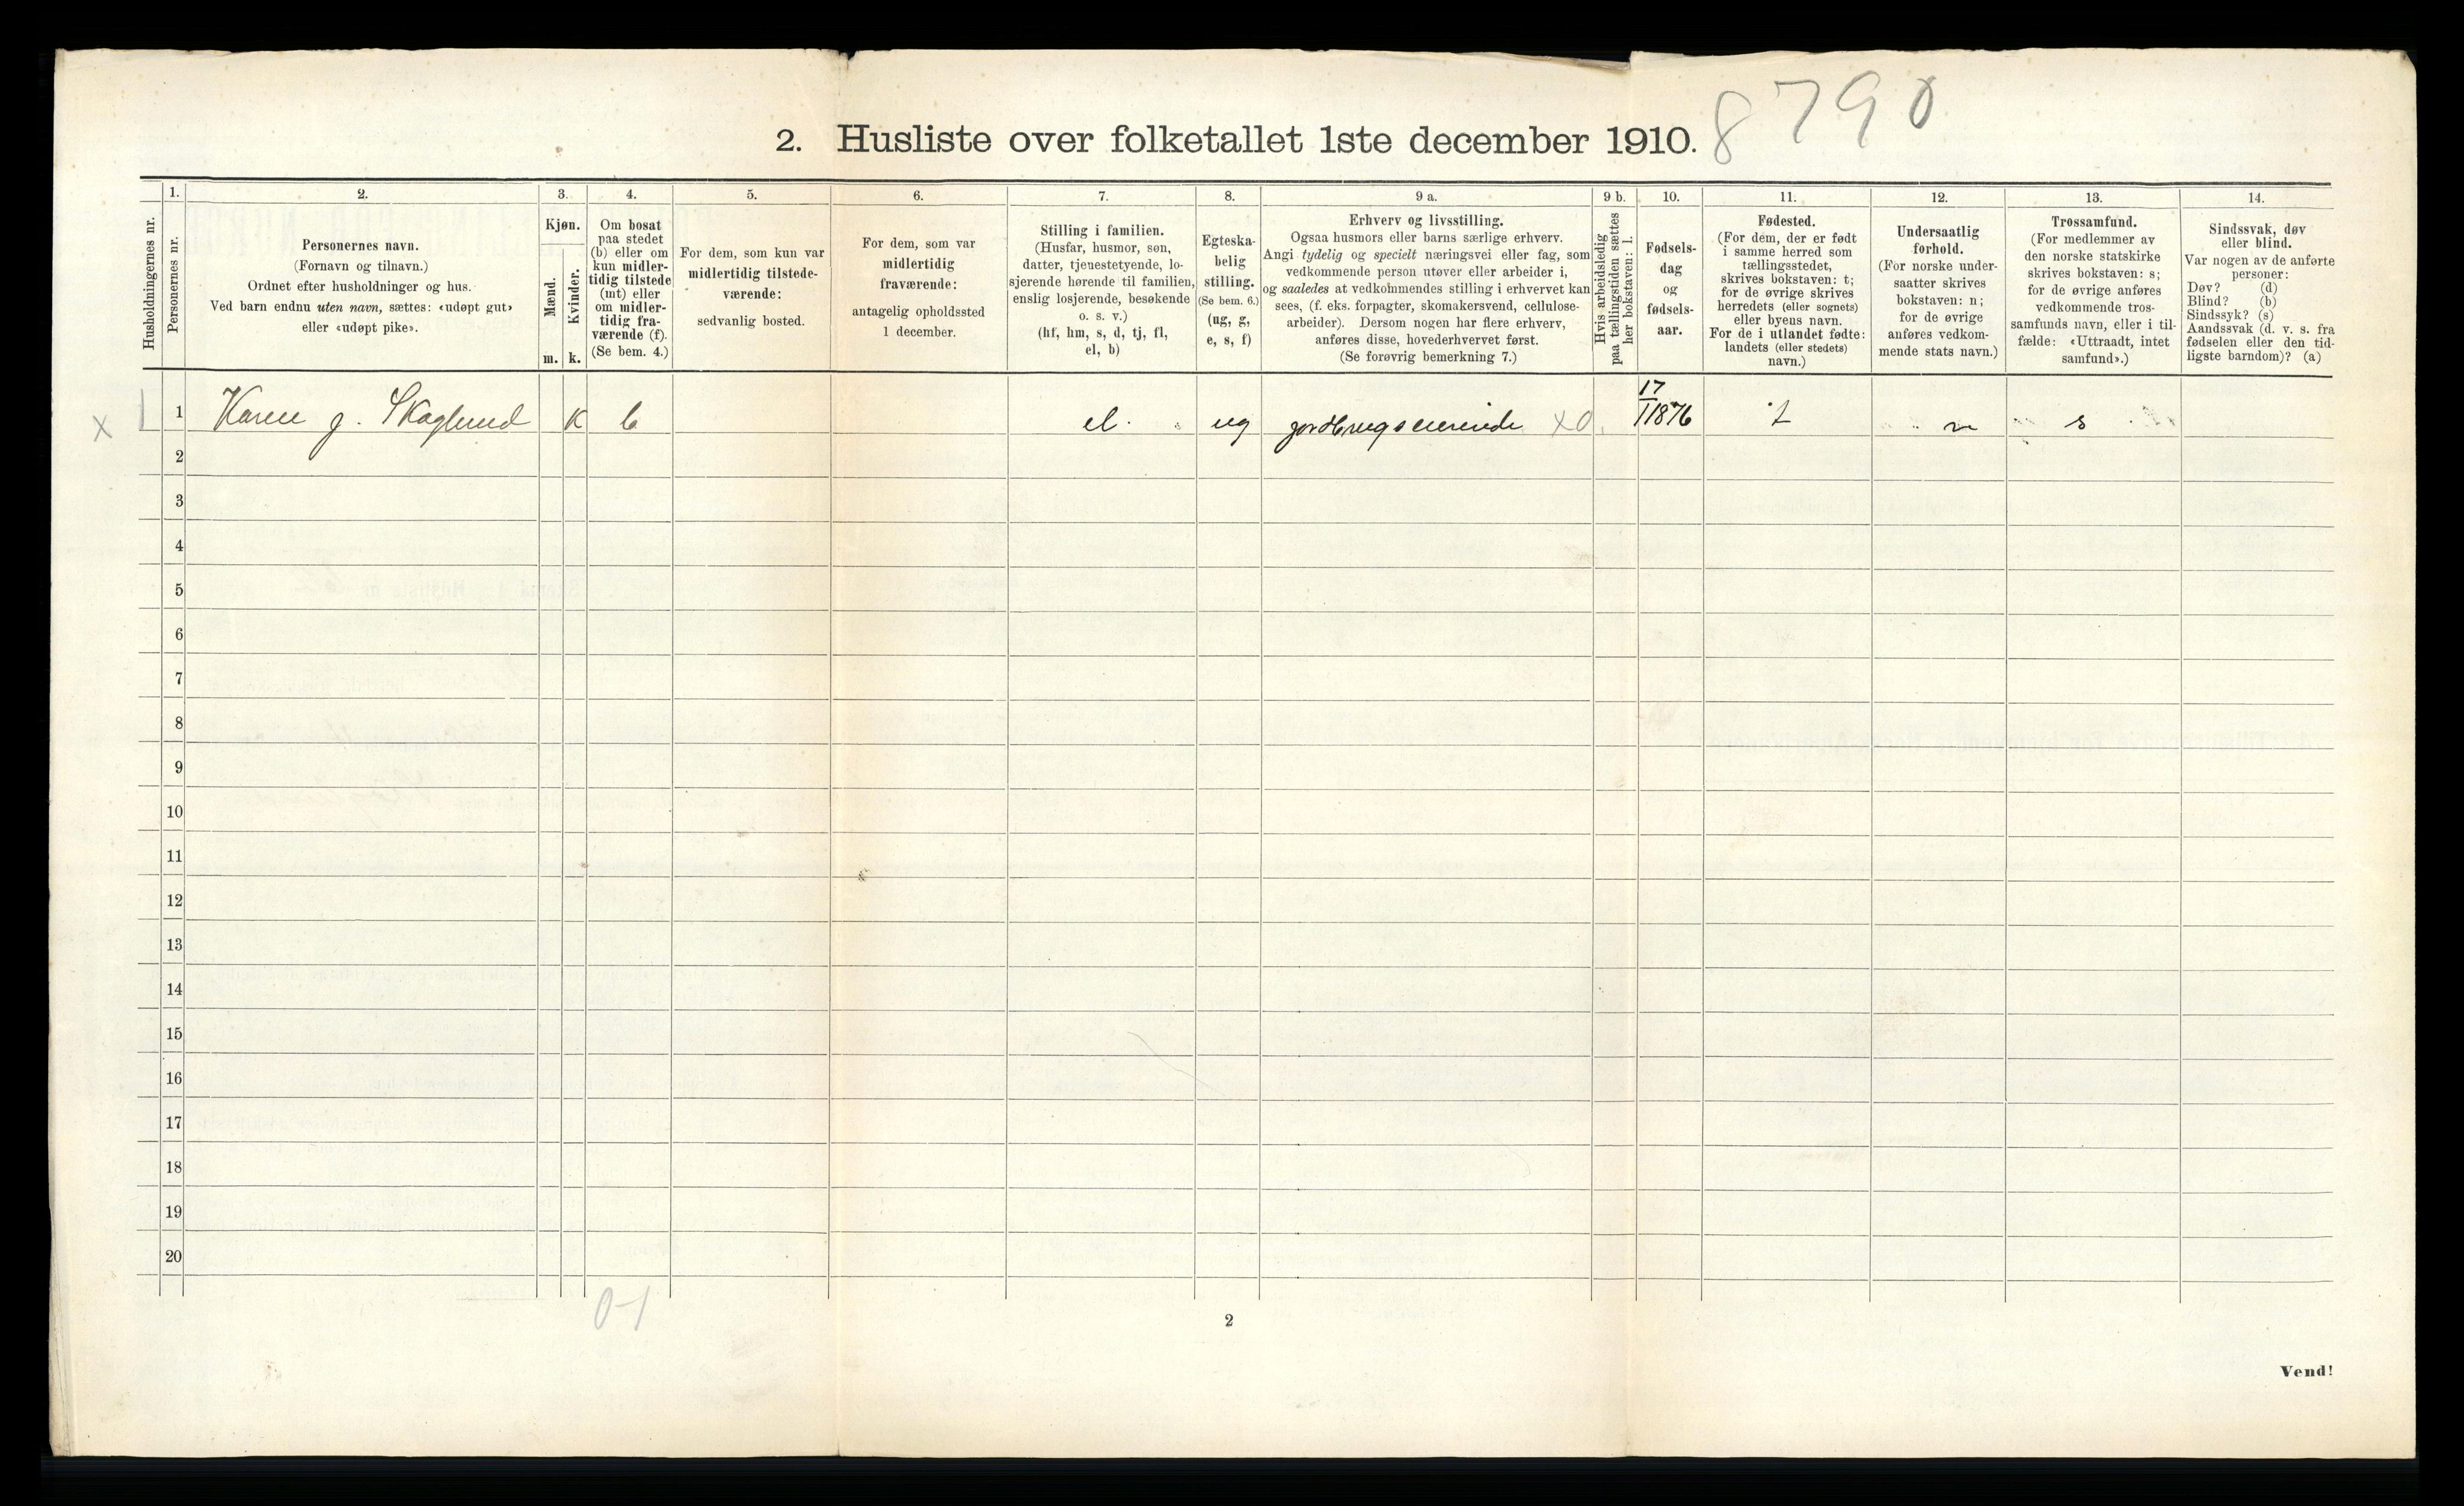 8790
2. Husliste over folketallet 1ste december 1910.
Husholdningernes nr.
1.
Personernes nr.
2.
Personernes navn.
(Fornavn og tilnavn.)
Ordnet efter husholdninger og hus.
Ved barn endnu uten navn, sættes: «udøpt gut»
eller «udøpt pike».
3.
Kjøn.
Mænd.
Kvinder.
m. k.
4.
Om bosat
paa stedet
(b) eller om
kun midler-
tidig tilstede
(mt) eller
om midler-
tidig fra-
værende (f).
(Se bem. 4.)
5.
For dem, som kun var
midlertidig tilstede-
værende:
sedvanlig bosted.
6.
For dem, som var
midlertidig
fraværende:
antagelig opholdssted
1 december.
7.
Stilling i familien.
(Husfar, husmor, søn,
datter, tjenestetyende, lo-
sjerende hørende til familien,
enslig losjerende, besøkende
o. s. v.)
(hf, hm, s, d, tj, fl,
el, b)
8.
Egteska-
belig
stilling.
(Se bem. 6.)
(ug, g,
e, s, f)
9 a.
Erhverv og livsstilling.
Ogsaa husmors eller barns særlige erhverv.
Angi tydelig og specielt næringsvei eller fag, som
vedkommende person utøver eller arbeider i,
og saaledes at vedkommendes stilling i erhvervet kan
sees, (f. eks. forpagter, skomakersvend, cellulose-
arbeider). Dersom nogen har flere erhverv,
anføres disse, hovederhvervet først.
(Se forøvrig bemerkning 7.)
9 b.
Hvis arbeidsledig
paa tællingstiden sættes
her bokstaven: l.
10.
Fødsels-
dag
og
fødsels-
aar.
11.
Fødested.
(For dem, der er født
i samme herred som
tællingsstedet,
skrives bokstaven: t;
for de øvrige skrives
herredets (eller sognets)
eller byens navn.
For de i utlandet fødte:
landets (eller stedets)
navn.)
12.
Undersaatlig
forhold.
(For norske under-
saatter skrives
bokstaven: n;
for de øvrige
anføres vedkom-
mende stats navn.)
13.
Trossamfund.
(For medlemmer av
den norske statskirke
skrives bokstaven: s;
for de øvrige anføres
vedkommende tros-
samfunds navn, eller i til-
fælde: «Uttraadt, intet
samfund».)
14.
Sindssvak, døv
eller blind.
Var nogen av de anførte
personer:
Døv? (d)
Blind? (b)
Sindssyk? (s)
Aandssvak (d. v. s. fra
fødselen eller den tid-
ligste barndom)? (a)
x 1 1 Karen J. Skaglund K b el. ug jordbrugseierinde x0 17/1 1876 t n s
2
3
4
5
6
7
8
9
10
11
12
13
14
15
16
17
18
19
20
0-1
2
Vend!